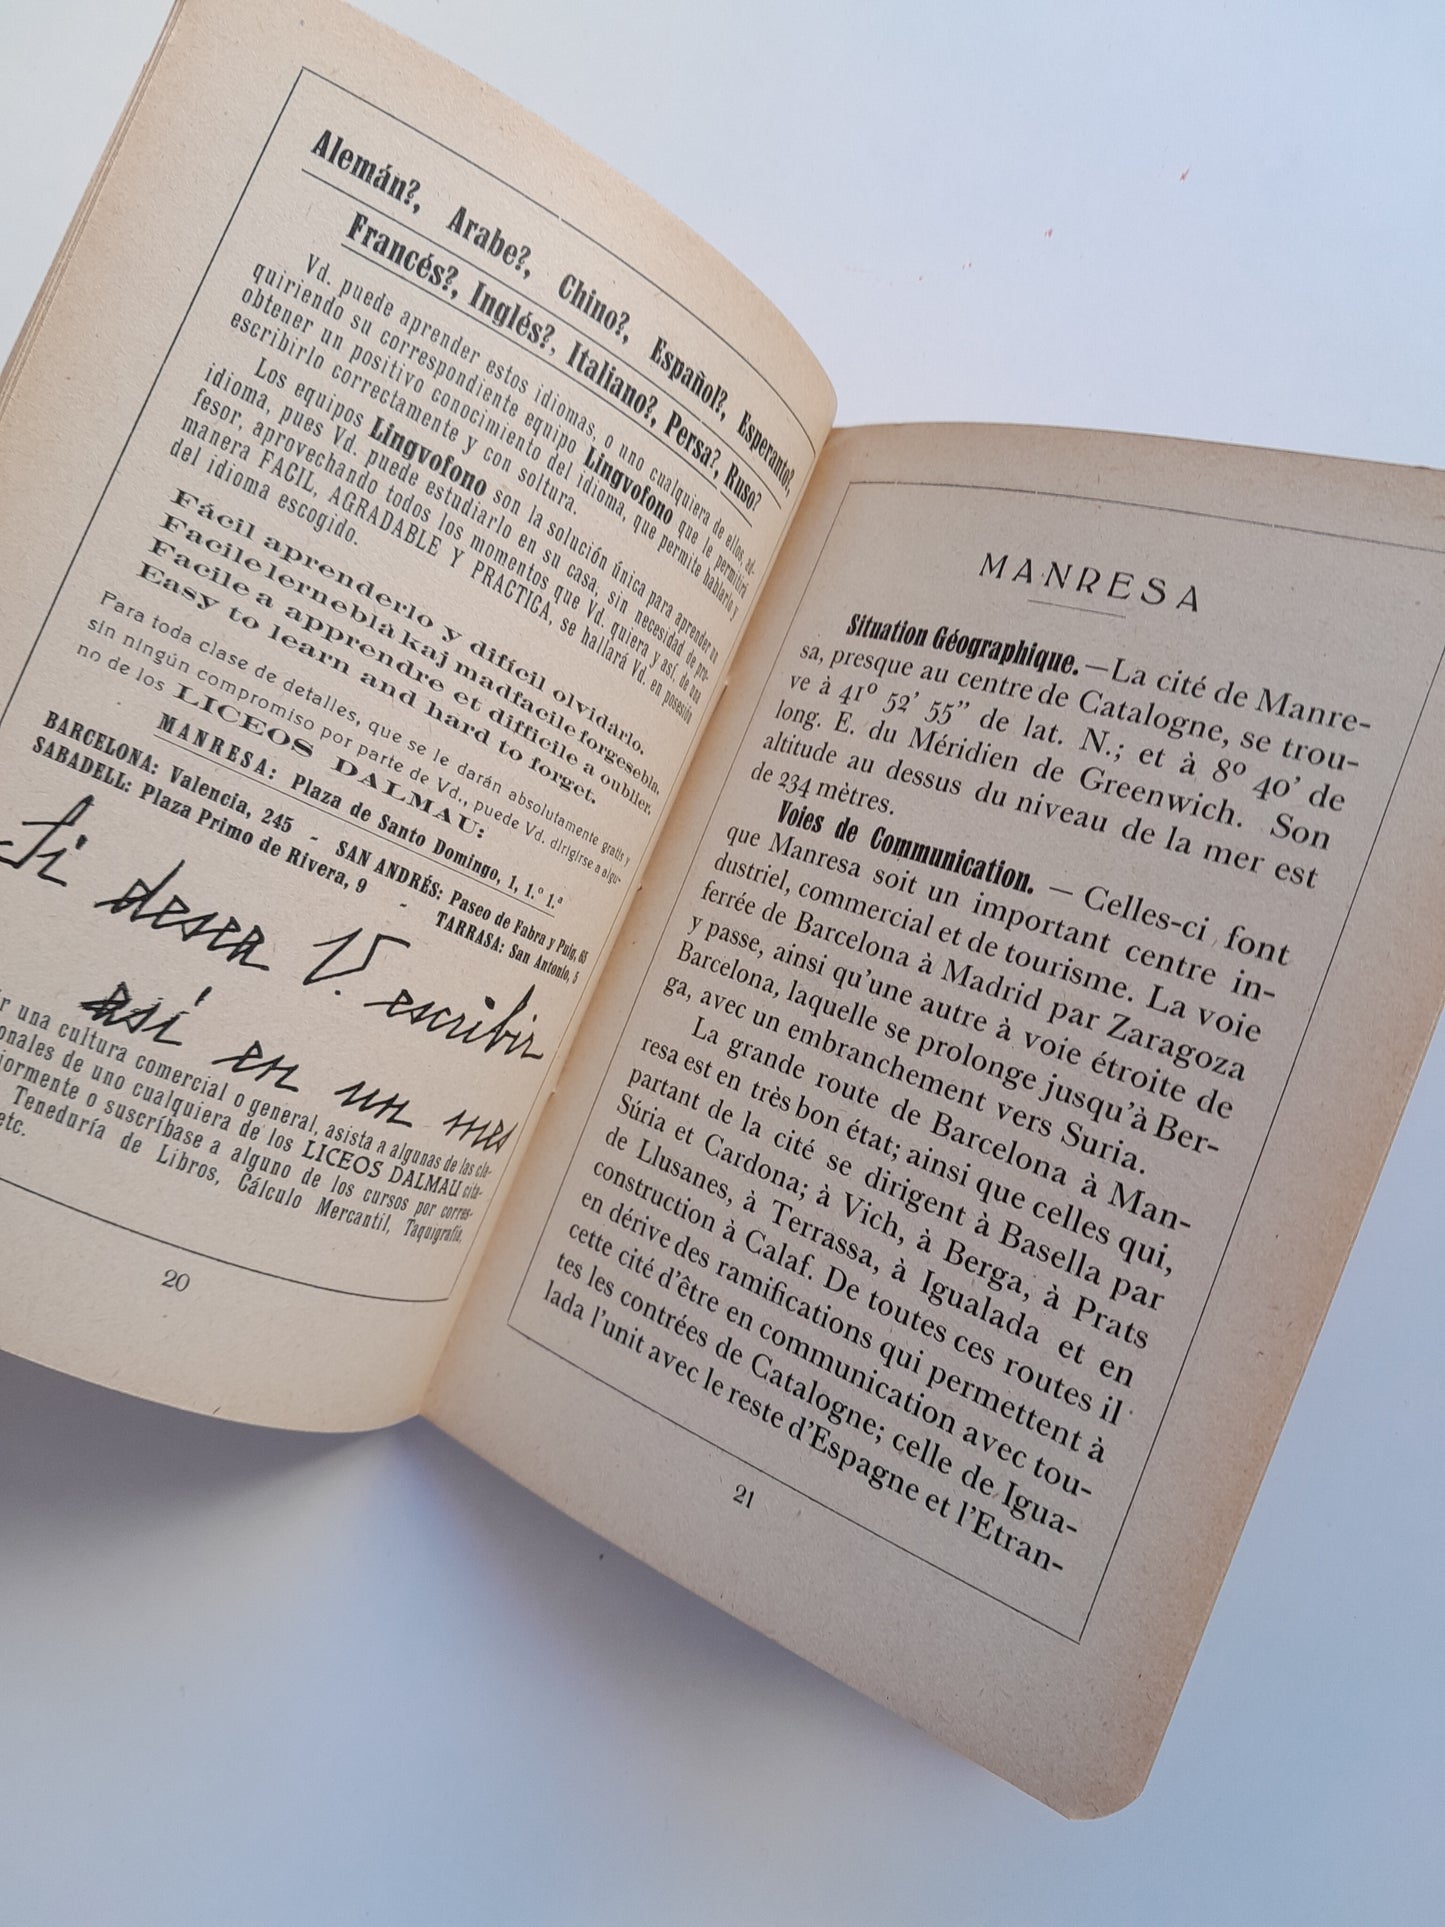 Alemán?, Arabe?, Chino?, Español?, Esperanto?,
Francés?, Inglés?, Italiano?, Persa?, Ruso?
Vd. puede aprender estos idiomas, o uno cualquiera de ellos, ad-
quiriendo su correspondiente equipo Lingvofono que le permitirá
obtener un positivo conocimiento del idioma, que permite hablarlo y
escribirlo correctamente y con soltura.
Los equipos Lingvofono son la solución única para aprender un
idioma, pues Vd. puede estudiarlo en su casa, sin necesidad de pro-
fesor, aprovechando todos los momentos que Vd. quiera y así, de una
manera FACIL, AGRADABLE Y PRACTICA, se hallará Vd. en posesión
del idioma escogido.
Fácil aprenderlo y difícil olvidárlo.
Facile lernebla kaj madfacile forgesebla.
Facile a apprendre et difficile a oublier.
Easy to learn and hard to forget.
Para toda clase de detalles, que se le darán absolutamente gratis y
sin ningún compromiso por parte de Vd., puede Vd. dirigirse a algu-
no de los LICEOS DALMAU:
MANRESA: Plaza de Santo Domingo, 1, 1.º 1.ª
BARCELONA: Valencia, 245 - SAN ANDRÉS: Paseo de Fabra y Puig, 65
SABADELL: Plaza Primo de Rivera, 9 - TARRASA: San Antonio, 5
Si desea V. escribir
así en un mes
r una cultura comercial o general, asista a algunas de las cla-
onales de uno cualquiera de los LICEOS DALMAU cita-
iormente o suscríbase a alguno de los cursos por corres-
Teneduría de Libros, Cálculo Mercantil, Taquigrafía,
etc.
20
MANRESA
Situation Géographique. — La cité de Manre-
sa, presque au centre de Catalogne, se trou-
ve à 41º 52' 55" de lat. N.; et à 8º 40' de
long. E. du Méridien de Greenwich. Son
altitude au dessus du niveau de la mer est
de 234 mètres.
Voies de Communication. — Celles-ci font
que Manresa soit un important centre in-
dustriel, commercial et de tourisme. La voie
ferrée de Barcelona à Madrid par Zaragoza
y passe, ainsi qu'une autre à voie étroite de
Barcelona, laquelle se prolonge jusqu'à Ber-
ga, avec un embranchement vers Suria.
La grande route de Barcelona à Man-
resa est en très bon état; ainsi que celles qui,
partant de la cité se dirigent à Basella par
Súria et Cardona; à Vich, à Berga, à Prats
de Llusanes, à Terrassa, à Igualada et en
construction à Calaf. De toutes ces routes il
en dérive des ramifications qui permettent à
cette cité d'être en communication avec tou-
tes les contrées de Catalogne; celle de Igua-
lada l'unit avec le reste d'Espagne et l'Etran-
21